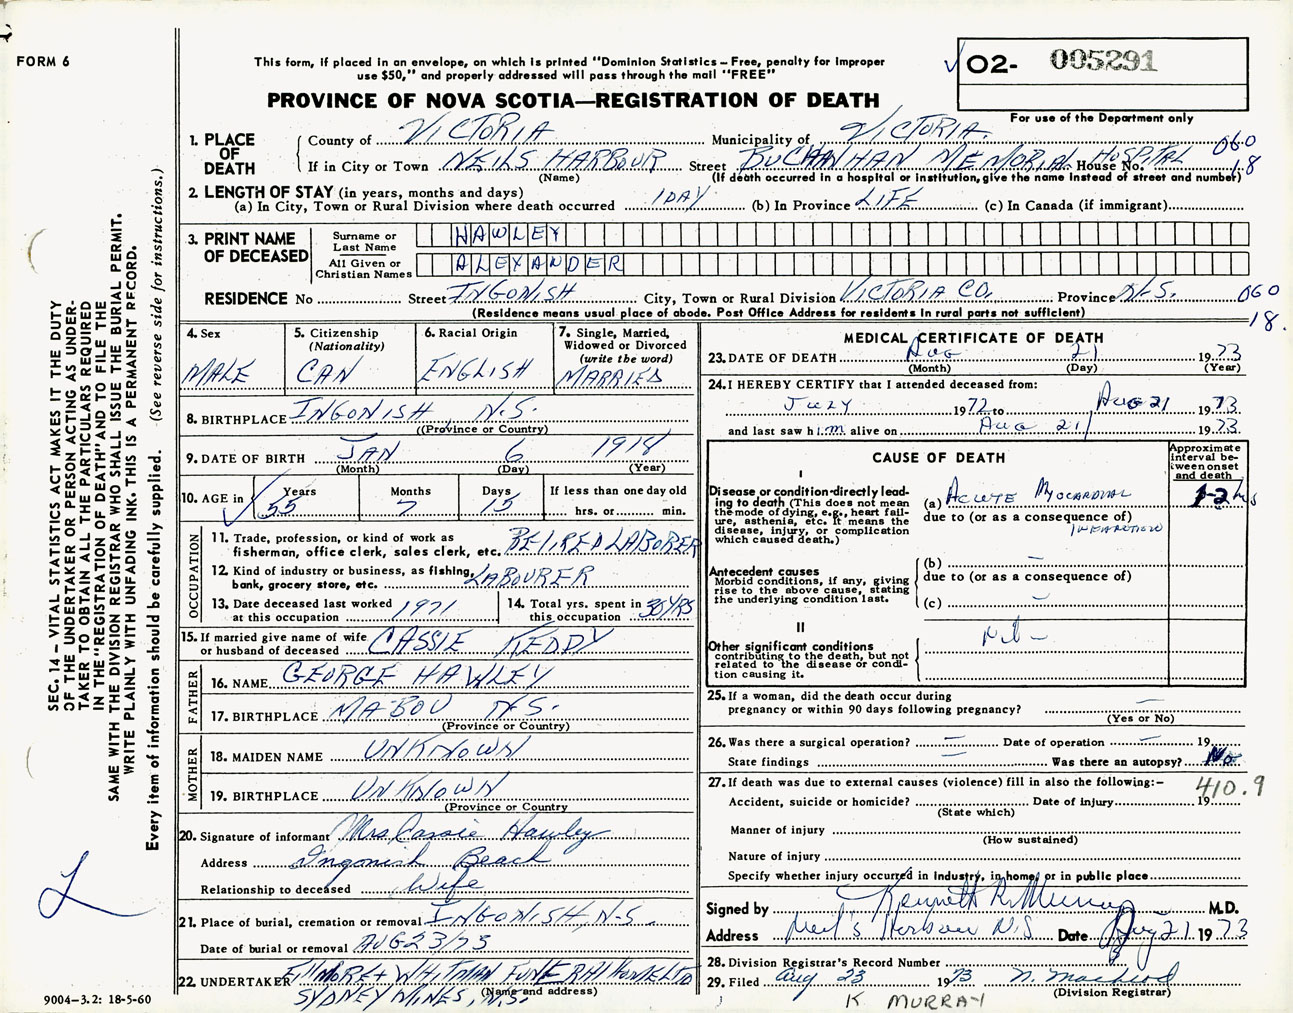 FORM 6
This form, if placed in an envelope, on which is printed "Dominion Statistics – Free, penalty for improper
use $50," and properly addressed will pass through the mail "FREE"
PROVINCE OF NOVA SCOTIA—REGISTRATION OF DEATH
O2- 005291
For use of the Department only
1. PLACE OF DEATH
County of VICTORIA Municipality of VICTORIA
If in City or Town NEILS HARBOUR Street BUCHANHAN MEMORIAL HOSPITAL House No.
060
18
(Name) (If death occurred in a hospital or institution, give the name instead of street and number)
2. LENGTH OF STAY (in years, months and days)
(a) In City, Town or Rural Division where death occurred 1 DAY (b) In Province LIFE (c) In Canada (if immigrant)
3. PRINT NAME OF DECEASED
Surname or Last Name HAWLEY
All Given or Christian Names ALEXANDER
RESIDENCE No Street INGONISH City, Town or Rural Division VICTORIA CO. Province N.S. 060
(Residence means usual place of abode. Post Office Address for residents in rural parts not sufficient) 18.
4. Sex MALE
5. Citizenship (Nationality) CAN
6. Racial Origin ENGLISH
7. Single, Married, Widowed or Divorced (write the word) MARRIED
8. BIRTHPLACE INGONISH N.S.
(Province or Country)
9. DATE OF BIRTH JAN 6 1918
(Month) (Day) (Year)
10. AGE in Years 55 Months 7 Days 15 If less than one day old hrs. or min.
OCCUPATION
11. Trade, profession, or kind of work as
fisherman, office clerk, sales clerk, etc. RETIRED LABORER
12. Kind of industry or business, as fishing,
bank, grocery store, etc. LABOURER
13. Date deceased last worked at this occupation 1971
14. Total yrs. spent in this occupation 35 YRS
15. If married give name of wife
or husband of deceased CASSIE KEDDY
FATHER
16. NAME GEORGE HAWLEY
17. BIRTHPLACE MABOU N.S.
(Province or Country)
MOTHER
18. MAIDEN NAME UNKNOWN
19. BIRTHPLACE UNKNOWN
(Province or Country
20. Signature of informant Mrs Cassie Hawley
Address Ingonish Beach
Relationship to deceased Wife
21. Place of burial, cremation or removal INGONISH, N-S.
Date of burial or removal AUG 23/73
22. UNDERTAKER FILLMORE + WHITMAN FUNERAL HOME LTD
(Name and address)
SYDNEY MINES, N.S.
MEDICAL CERTIFICATE OF DEATH
23. DATE OF DEATH AUG 21 1973
(Month) (Day) (Year)
24. I HEREBY CERTIFY that I attended deceased from:
JULY 1972 to AUG 21 1973
and last saw him alive on AUG 21 1973
CAUSE OF DEATH
Approximate interval between onset and death
I
Disease or condition directly leading to death (This does not mean the mode of dying, e.g., heart failure, asthenia, etc. It means the disease, injury, or complication which caused death.)
(a) ACUTE MYOCARDIAL 1-2 hs
due to (or as a consequence of)
INFARCTION
Antecedent causes
Morbid conditions, if any, giving rise to the above cause, stating the underlying condition last.
(b) –
due to (or as a consequence of)
(c) –
II
Nil –
Other significant conditions
contributing to the death, but not related to the disease or condition causing it.
25. If a woman, did the death occur during
pregnancy or within 90 days following pregnancy? –
(Yes or No)
26. Was there a surgical operation? – Date of operation – 19
State findings – Was there an autopsy? No
27. If death was due to external causes (violence) fill in also the following:–
410.9
Accident, suicide or homicide? Date of injury 19
(State which)
Manner of injury
(How sustained)
Nature of injury
Specify whether injury occurred in industry, in home, or in public place
Signed by Kenneth R. Murray M.D.
Address Neil's Harbour N.S Date Aug 21 1973
28. Division Registrar's Record Number
29. Filed Aug 23 1973 N. MacLeod
(Division Registrar)
K MURRAY
SEC. 14 – VITAL STATISTICS ACT MAKES IT THE DUTY
OF THE UNDERTAKER OR PERSON ACTING AS UNDER-
TAKER TO OBTAIN ALL THE PARTICULARS REQUIRED
IN THE "REGISTRATION OF DEATH" AND TO FILE THE
SAME WITH THE DIVISION REGISTRAR WHO SHALL ISSUE THE BURIAL PERMIT.
WRITE PLAINLY WITH UNFADING INK. THIS IS A PERMANENT RECORD.
Every item of information should be carefully supplied. (See reverse side for instructions.)
9004–3.2: 18-5-60